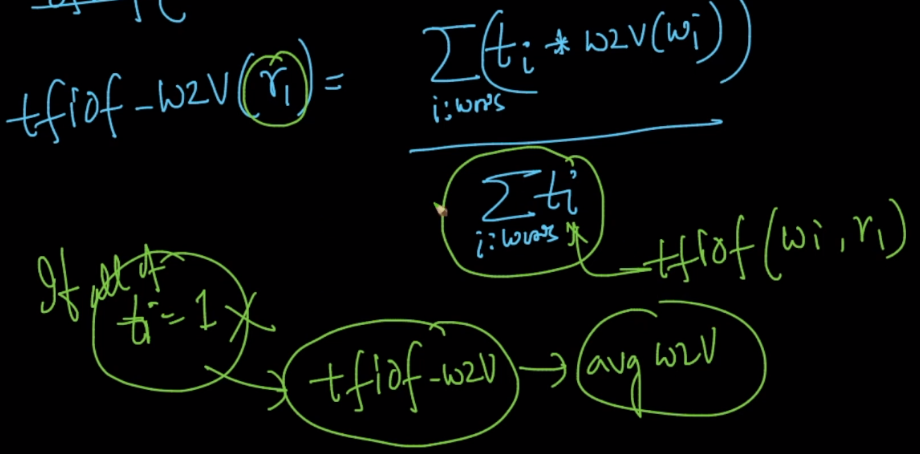 tfidf-W2V(r₁) = Σ(tᵢ * W2V(wᵢ))
i:words
Σ tᵢ
i:words
tfidf(wᵢ, r₁)
If all of
tᵢ = 1
tfidf-W2V → avg W2V